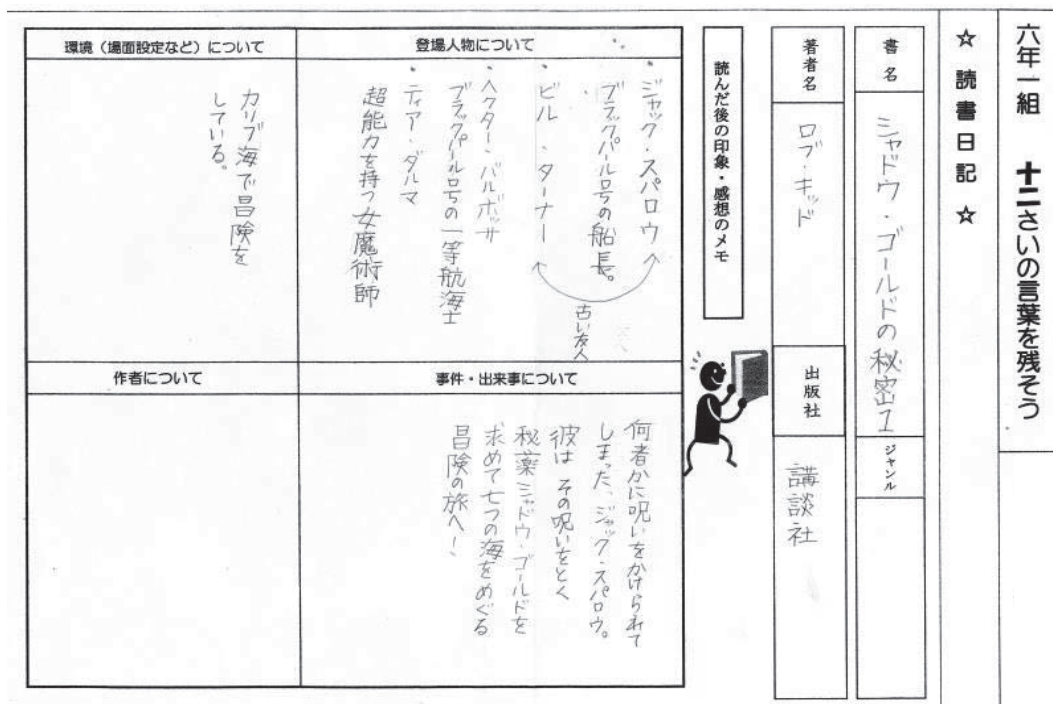 六年一組 十二さいの言葉を残そう
☆ 読書日記 ☆
書名
シャドウ・ゴールドの秘密1
ジャンル
著者名
ロブ・キッド
出版社
講談社
読んだ後の印象・感想のメモ
登場人物について
・ジャック・スパロウ
ブラックパール号の船長。
・ビル・ターナー
古い友人
・ヘクター・バルボッサ
ブラックパール号の一等航海士
・ティア・ダルマ
超能力を持つ女魔術師
環境（場面設定など）について
カリブ海で冒険を
している。
事件・出来事について
何者かに呪いをかけられて
しまった、ジャック・スパロウ。
彼は その呪いをとく
秘薬シャドウ・ゴールドを
求めて七つの海をめぐる
冒険の旅へ！
作者について